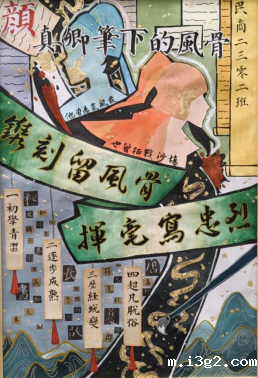 顏真卿筆下的風骨
民商二三〇二班
也曾征戰沙場
鐫刻留風骨
揮毫寫忠烈
一初學青澀
二逐步成熟
三歷經蛻變
四超凡脫俗
m.i3g2.com